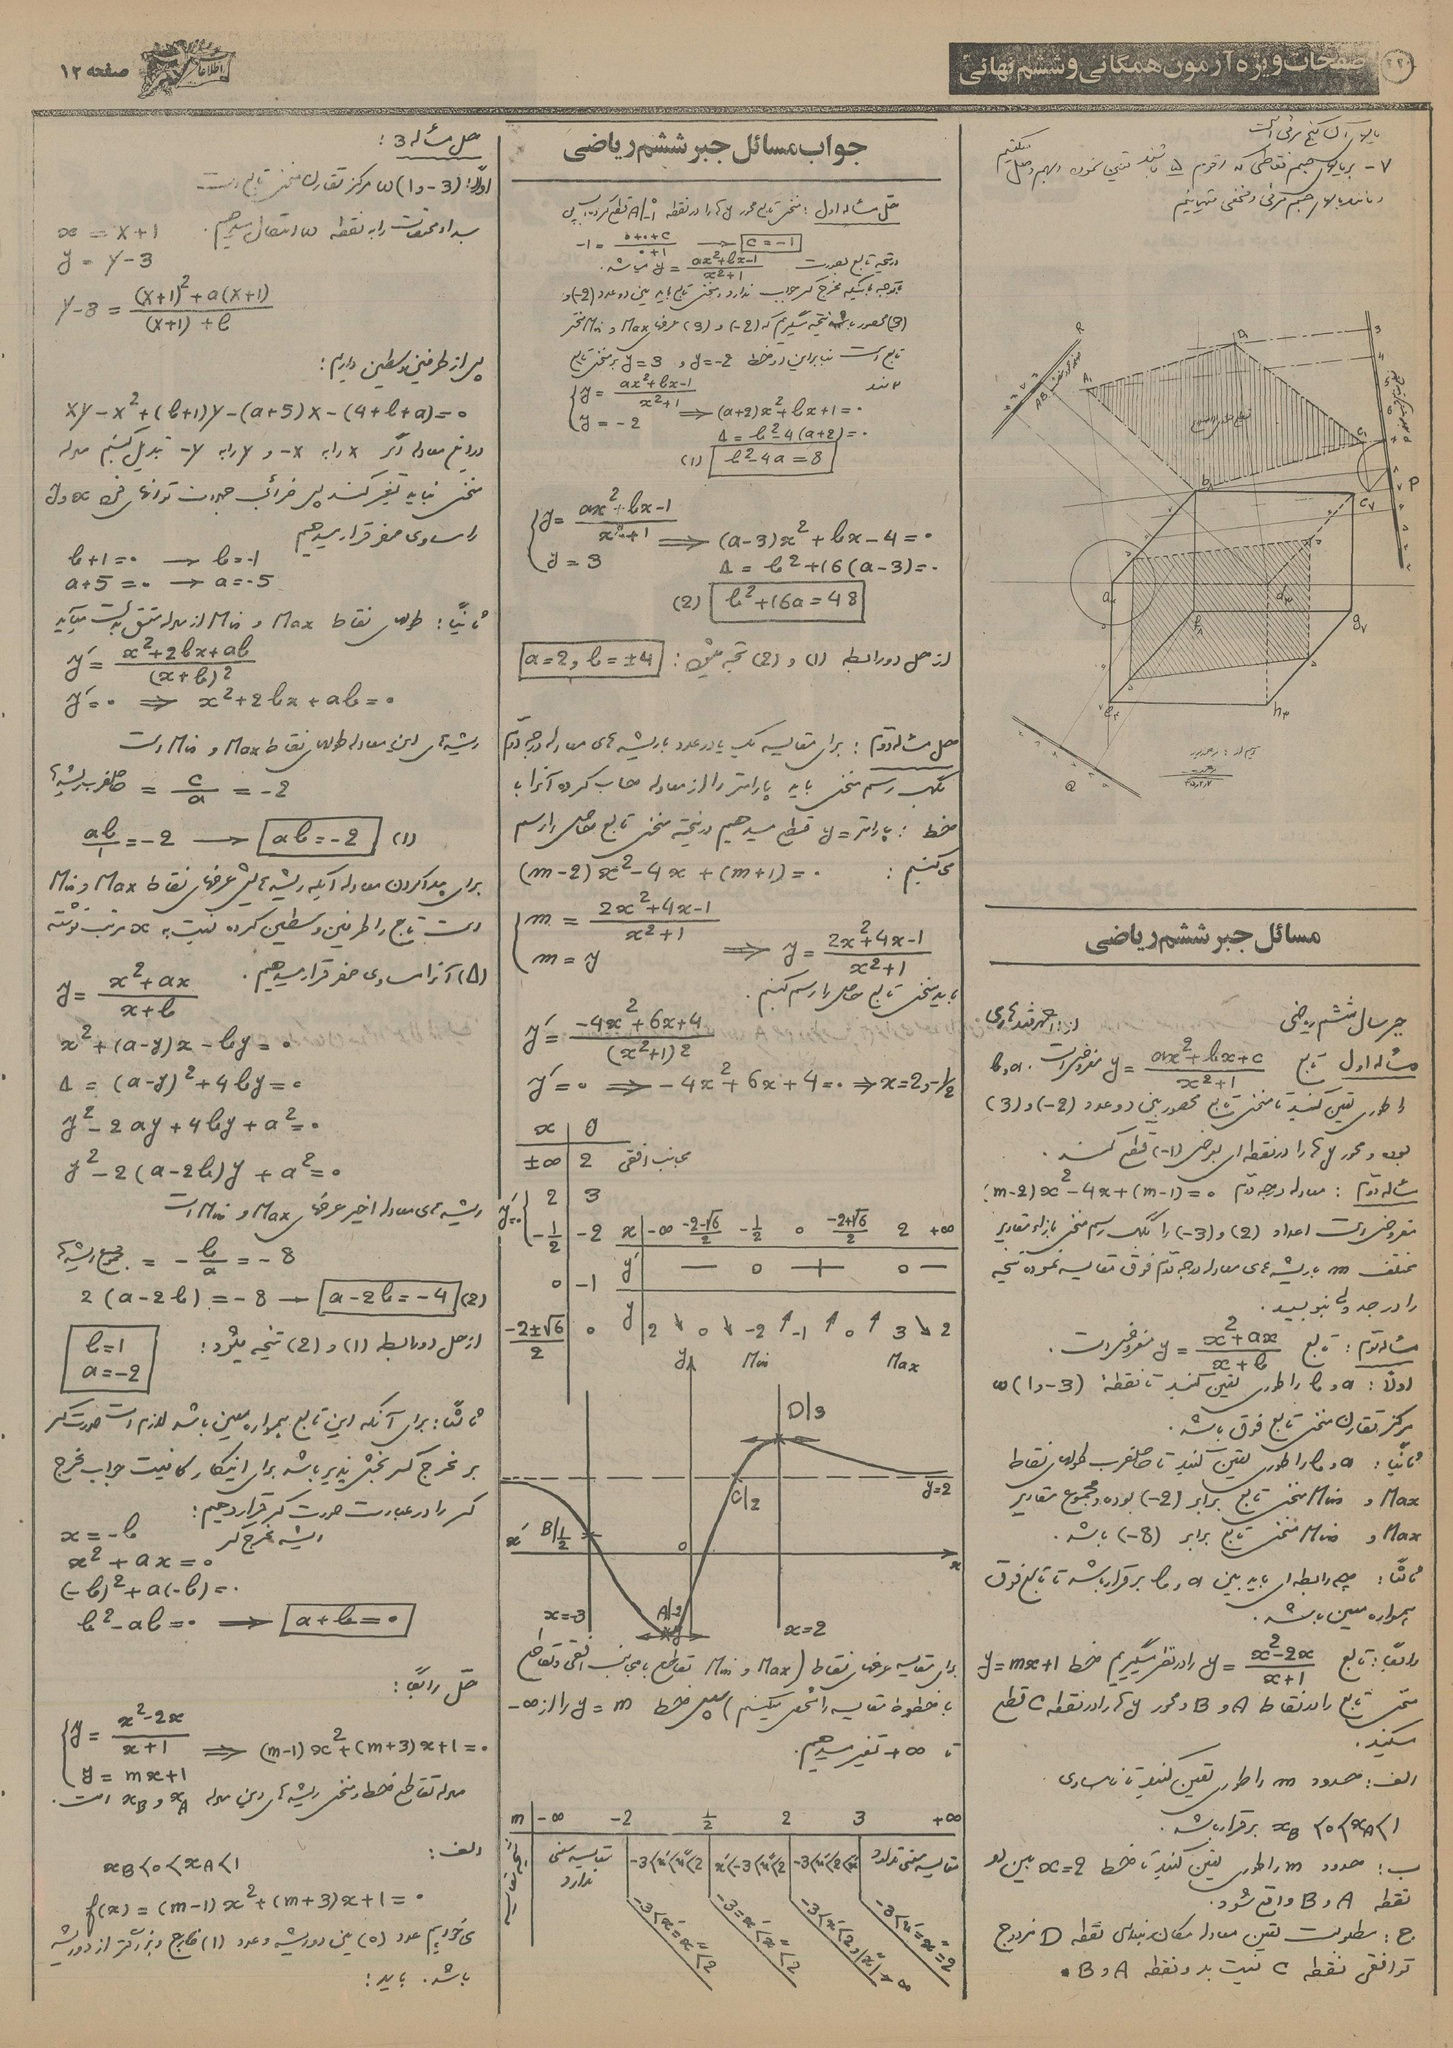 ۲۲۰
صفحات ویژه آزمون همگانی و ششم نهائی
اطلاعات
صفحه ۱۲
مسائل جبر ششم ریاضی
جبر سال ششم ریاضی
مسئله اول تابع y = (ax²+bx+c)/(x²+1) مفروض است. a و b
را طوری تعیین کنید تا منحنی تابع محصور بین دو عدد (2-) و (3)
بوده و محور yها را در نقطه‌ای بعرض (1-) قطع کند.
مسئله دوم: معادله درجه دوم (m-2)x²-4x+(m-1)=0
مفروض است اعداد (2) و (3-) را بکمک رسم منحنی بازاء مقادیر
مختلف m با ریشه‌های معادله درجه دوم فوق مقایسه نموده نتیجه
را در جدولی بنویسید.
مسئله سوم: تابع y = (x²+ax)/(x+b) مفروض است.
اولاً: a و b را طوری تعیین کنید تا نقطه ω(1و-3)
مرکز تقارن منحنی تابع فوق باشد.
ثانیاً: a و b را طوری تعیین کنید تا حاصلضرب طولهای نقاط
Max و Min منحنی تابع برابر (2-) بوده و مجموع مقادیر
Max و Min منحنی تابع برابر (8-) باشد.
ثالثاً: چه رابطه‌ای باید بین a و b برقرار باشد تا تابع فوق
همواره معین باشد.
رابعاً: تابع y = (x²-2x)/(x+1) را در نظر میگیریم خط y=mx+1
منحنی تابع را در نقاط A و B و محور yها را در نقطه C قطع
میکند.
الف: حدود m را طوری تعیین کنید تا نامساوی
xB<0<xA<1 برقرار باشد.
ب: حدود m را طوری تعیین کنید تا خط x=2 بین دو
نقطه A و B واقع شود.
ج: مطلوبست تعیین معادله مکان هندسی نقطه D مزدوج
توافقی نقطه C نسبت بدو نقطه A و B.
جواب مسائل جبر ششم ریاضی
حل مسئله اول: منحنی تابع محور yها را در نقطه A|-1 قطع کرده پس
-1 = (0+0+c)/(0+1) → c=-1
در نتیجه تابع بصورت y = (ax²+bx-1)/(x²+1) میباشد.
(3) محصور باشد نتیجه میگیریم که (2-) و (3) عرضهای Max و Min منحنی
تابع است بنابراین دو خط y=-2 و y=3 بر منحنی تابع
{y = (ax²+bx-1)/(x²+1)
y=-2 ⇒ (a+2)x²+bx+1=0
Δ=b²-4(a+2)=0
(1) b²-4a=8
{y = (ax²+bx-1)/(x²+1)
y=3 ⇒ (a-3)x²+bx-4=0
Δ=b²+16(a-3)=0
(2) b²+16a=48
از حل دو رابطه (1) و (2) نتیجه میشود: a=2 و b=±4
حل مسئله دوم: برای مقایسه یک یا دو عدد با ریشه‌های معادله درجه دوم
بکمک رسم منحنی باید پارامتر را از معادله حساب کرده آنرا با
خط: پارامتر=y قطع میدهیم در نتیجه منحنی تابع حاصل را رسم
میکنیم: (m-2)x²-4x+(m+1)=0
{m = (2x²+4x-1)/(x²+1)
m=y ⇒ y = (2x²+4x-1)/(x²+1)
باید منحنی تابع حاصل را رسم کنیم.
y' = (-4x²+6x+4)/(x²+1)²
y'=0 ⇒ -4x²+6x+4=0 ⇒ x=2,-1/2
x | y
±∞ | 2 مجانب افقی
y'=0 { 2 | 3
-1/2 | -2
0 | -1
(-2±√6)/2 | 0
x | -∞ (-2-√6)/2 -1/2 0 (-2+√6)/2 2 +∞
y' | — 0 + 0 —
y | 2 ↘ 0 ↘ -2 ↗ -1 ↗ 0 ↗ 3 ↘ 2
Min Max
y
D|3
C/2
y=2
B/1/2
x' 0 x
x=-3
A|-2
x=2
برای مقایسه عرضهای نقاط (Max و Min تقاطع با مجانب افقی و تقاطع
با خطوط مقایسه را مشخص میکنیم) سپس خط y=m را از ∞-
تا ∞+ تغییر میدهیم.
m | -∞ -2 1/2 2 3 +∞
مقایسه معنی ندارد
-3<x'<x''<2
x'<-3<x''<2
-3<x'<2<x''
مقایسه معنی ندارد
-3<x'=x''<2
-3=x'<x''<2
-3<x'=x''=2
حل مسئله 3:
اولاً: ω(1و-3) مرکز تقارن منحنی تابع است
مبداء مختصات را به نقطه ω انتقال میدهیم.
x=X+1
y=Y-3
Y-3 = ((X+1)²+a(X+1))/((X+1)+b)
پس از طرفین وسطین داریم:
XY-X²+(b+1)Y-(a+5)X-(4+b+a)=0
در این معادله اگر X را به X- و Y را به Y- تبدیل کنیم معادله
منحنی نباید تغییر کند پس ضرائب جملات توانهای فرد x و y
را مساوی صفر قرار میدهیم
b+1=0 → b=-1
a+5=0 → a=-5
ثانیاً: طولهای نقاط Max و Min از معادله مشتق بدست میآید
y' = (x²+2bx+ab)/(x+b)²
y'=0 ⇒ x²+2bx+ab=0
ریشه‌های این معادله طولهای نقاط Max و Min است
حاصلضرب ریشه‌ها = c/a = -2
ab/1=-2 → ab=-2 (1)
برای پیدا کردن معادله‌ایکه ریشه‌هایش عرضهای نقاط Max و Min
است تابع را طرفین وسطین کرده نسبت به x مرتب نوشته
(Δ) آنرا مساوی صفر قرار میدهیم.
y = (x²+ax)/(x+b)
x²+(a-y)x-by=0
Δ=(a-y)²+4by=0
y²-2ay+4by+a²=0
y²-2(a-2b)y+a²=0
ریشه‌های معادله اخیر عرضهای Max و Min است
مجموع ریشه‌ها = -b/a = -8
2(a-2b)=-8 → a-2b=-4 (2)
از حل دو رابطه (1) و (2) نتیجه میشود: b=1
a=-2
ثالثاً: برای آنکه این تابع همواره معین باشد لازم است صورت کسر
بر مخرج کسر بخش پذیر باشد برای اینکار کافیست جواب مخرج
کسر را در عبارت صورت کسر قرار دهیم:
ریشه مخرج کسر x=-b
x²+ax=0
(-b)²+a(-b)=0
b²-ab=0 ⇒ a+b=0
حل رابعاً:
{y = (x²-2x)/(x+1)
y=mx+1 ⇒ (m-1)x²+(m+3)x+1=0
معادله تقاطع خط و منحنی ریشه‌های این معادله xA و xB است.
الف:
xB<0<xA<1
f(x)=(m-1)x²+(m+3)x+1=0
میخواهیم عدد (0) بین دو ریشه و عدد (1) خارج و بزرگتر از دو ریشه
باشد. باید: